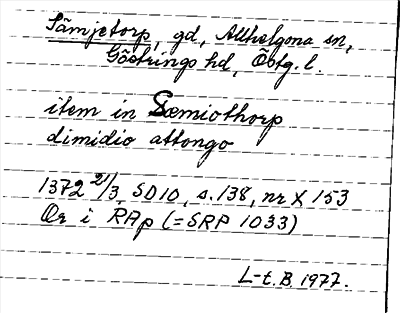 Sämjetorp, gd, Allhelgona sn,
Göstrings hd, Östg. l.
item in Sæmiothorp
dimidio attongo
1372 21/3, SD10, s. 138, nr X 153
Or i RAp (=SRP 1033)
L-t. B. 1977.